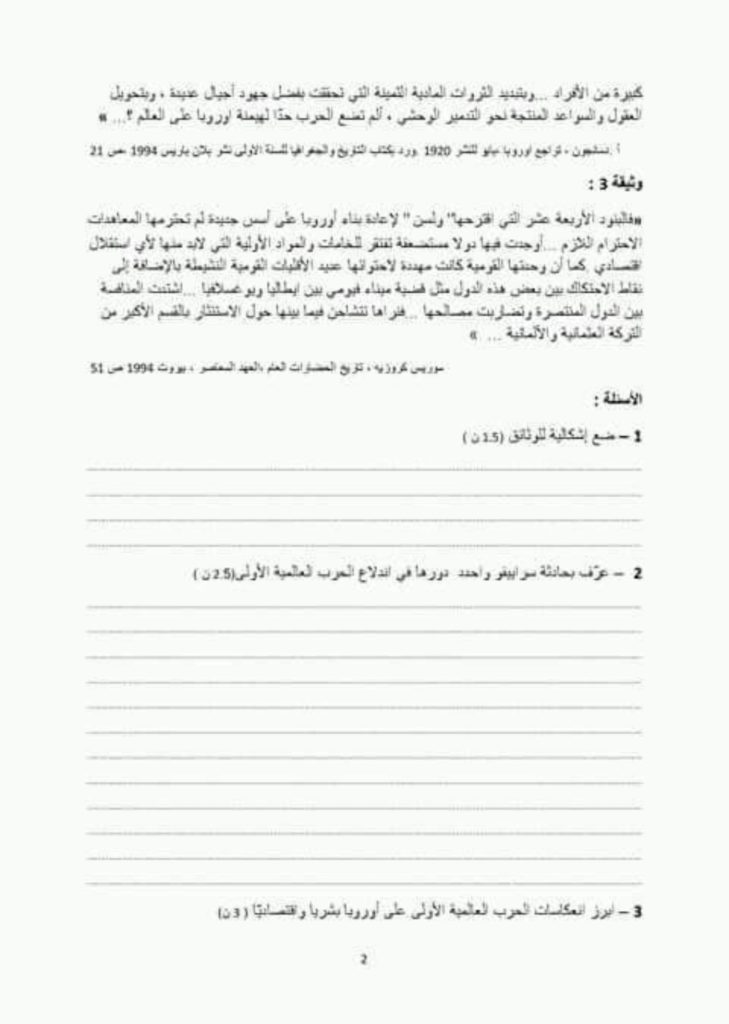 كبيرة من الأفراد ...وبتبديد الثروات المادية الثمينة التي تحققت بفضل جهود أجيال عديدة ، وبتحويل
العقول والسواعد المنتجة نحو التدمير الوحشي ، ألم تضع الحرب حدّا لهيمنة اوروبا على العالم ؟... »
أ .دمانجون ، تراجع اوروبا ،بايو للنشر 1920 .ورد بكتاب التاريخ والجغرافيا للسنة الأولى نشر بلان باريس 1994 ،ص 21
وثيقة 3 :
«فالبنود الأربعة عشر التي اقترحها" ولسن " لإعادة بناء أوروبا على أسس جديدة لم تحترمها المعاهدات
الاحترام اللازم ...أوجدت فيها دولا مستضعفة تفتقر للخامات والمواد الأولية التي لابد منها لأي استقلال
اقتصادي .كما أن وحدتها القومية كانت مهددة لاحتوائها عديد الأقليات القومية النشيطة بالإضافة إلى
نقاط الاحتكاك بين بعض هذه الدول مثل قضية ميناء فيومي بين ايطاليا ويوغسلافيا ...اشتدت المنافسة
بين الدول المنتصرة وتضاربت مصالحها ...فتراها تتشاحن فيما بينها حول الاستئثار بالقسم الأكبر من
التركة العثمانية والألمانية ... »
موريس كروزيه ، تاريخ الحضارات العام ،العهد المعاصر ، بيروت 1994 ص 51
الأسئلة :
1 – ضع إشكالية للوثائق (1.5 ن )
2 – عرّف بحادثة سراييفو واحدد دورها في اندلاع الحرب العالمية الأولى(2.5 ن )
3 – ابرز انعكاسات الحرب العالمية الأولى على أوروبا بشريا واقتصاديّا ( 3 ن)
2